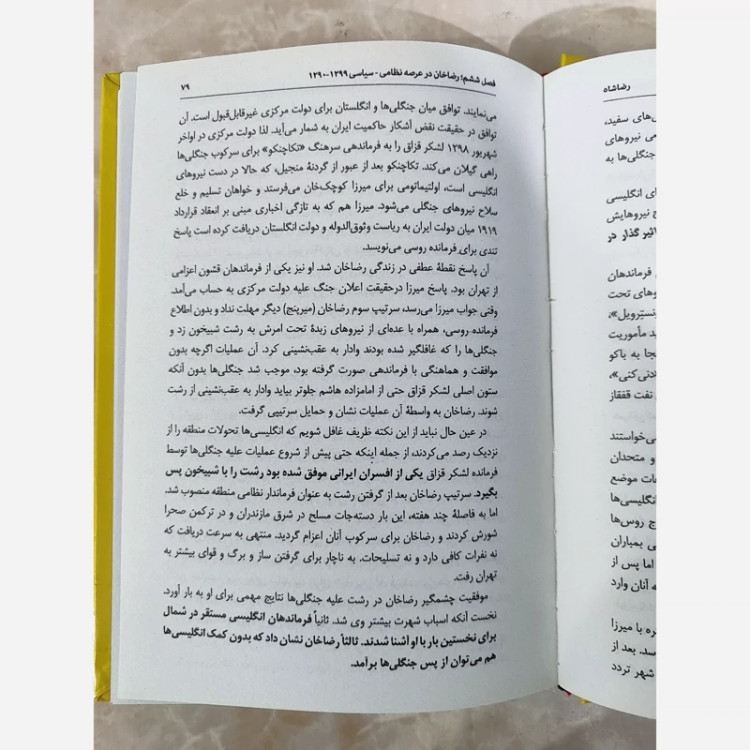 رضاشاه
ی‌های سفید،
می نیروهای
جنگلی‌ها به
ای انگلیسی
ج نیروهایش
اثیر گذار در
فرماندهان
وهای تحت
نستِرویل»،
ید مأموریت
نجا به یاکو
لادنی‌کنی»،
تفت قفقاز
ی‌خواستند
و متحدان
ات موضع
انگلیسی‌ها
ج روس‌ها
ی بمباران
اما پس از
ه آنان وارد
ره با میرزا
سد. بعد از
شهر تردد
فصل ششم؛ رضاخان در عرصه نظامی - سیاسی ۱۲۹۹-۱۲۹۰
۷۹
می‌نمایند. توافق میان جنگلی‌ها و انگلستان برای دولت مرکزی غیرقابل‌قبول است. آن
توافق در حقیقت نقض آشکار حاکمیت ایران به شمار می‌آید. لذا دولت مرکزی در اواخر
شهریور ۱۲۹۸ لشکر قزاق را به فرماندهی سرهنگ «تکاچنکو» برای سرکوب جنگلی‌ها
راهی گیلان می‌کند. تکاچنکو بعد از عبور از گردنهٔ منجیل، که حالا در دست نیروهای
انگلیسی است، اولتیماتومی برای میرزا کوچک‌خان می‌فرستد و خواهان تسلیم و خلع
سلاح نیروهای جنگلی می‌شود. میرزا هم که به تازگی اخباری مبنی بر انعقاد قرارداد
۱۹۱۹ میان دولت ایران به ریاست وثوق‌الدوله و دولت انگلستان دریافت کرده است پاسخ
تندی برای فرمانده روسی می‌نویسد.
آن پاسخ نقطهٔ عطفی در زندگی رضاخان شد. او نیز یکی از فرماندهان قشون اعزامی
از تهران بود. پاسخ میرزا درحقیقت اعلان جنگ علیه دولت مرکزی به حساب می‌آمد.
وقتی جواب میرزا می‌رسد، سرتیپ سوم رضاخان (میرپنج) دیگر مهلت نداد و بدون اطلاع
فرمانده روسی، همراه با عده‌ای از نیروهای زبدهٔ تحت امرش به رشت شبیخون زد و
جنگلی‌ها را که غافلگیر شده بودند وادار به عقب‌نشینی کرد. آن عملیات اگرچه بدون
موافقت و هماهنگی با فرماندهی صورت گرفته بود، موجب شد جنگلی‌ها بدون آنکه
ستون اصلی لشکر قزاق حتی از امامزاده هاشم جلوتر بیاید وادار به عقب‌نشینی از رشت
شوند. رضاخان به واسطهٔ آن عملیات نشان و حمایل سرتیپی گرفت.
در عین حال نباید از این نکته ظریف غافل شویم که انگلیسی‌ها تحولات منطقه را از
نزدیک رصد می‌کردند، از جمله اینکه حتی پیش از شروع عملیات علیه جنگلی‌ها توسط
فرمانده لشکر قزاق یکی از افسران ایرانی موفق شده بود رشت را با شبیخون پس
بگیرد. سرتیپ رضاخان بعد از گرفتن رشت به عنوان فرماندار نظامی منطقه منصوب شد.
اما به فاصلهٔ چند هفته، این بار دسته‌جات مسلح در شرق مازندران و در ترکمن صحرا
شورش کردند و رضاخان برای سرکوب آنان اعزام گردید. منتهی به سرعت دریافت که
نه نفرات کافی دارد و نه تسلیحات. به ناچار برای گرفتن ساز و برگ و قوای بیشتر به
تهران رفت.
موفقیت چشمگیر رضاخان در رشت علیه جنگلی‌ها نتایج مهمی برای او به بار آورد.
نخست آنکه اسباب شهرت بیشتر وی شد. ثانیاً فرماندهان انگلیسی مستقر در شمال
برای نخستین بار با او آشنا شدند. ثالثاً رضاخان نشان داد که بدون کمک انگلیسی‌ها
هم می‌توان از پس جنگلی‌ها برآمد.